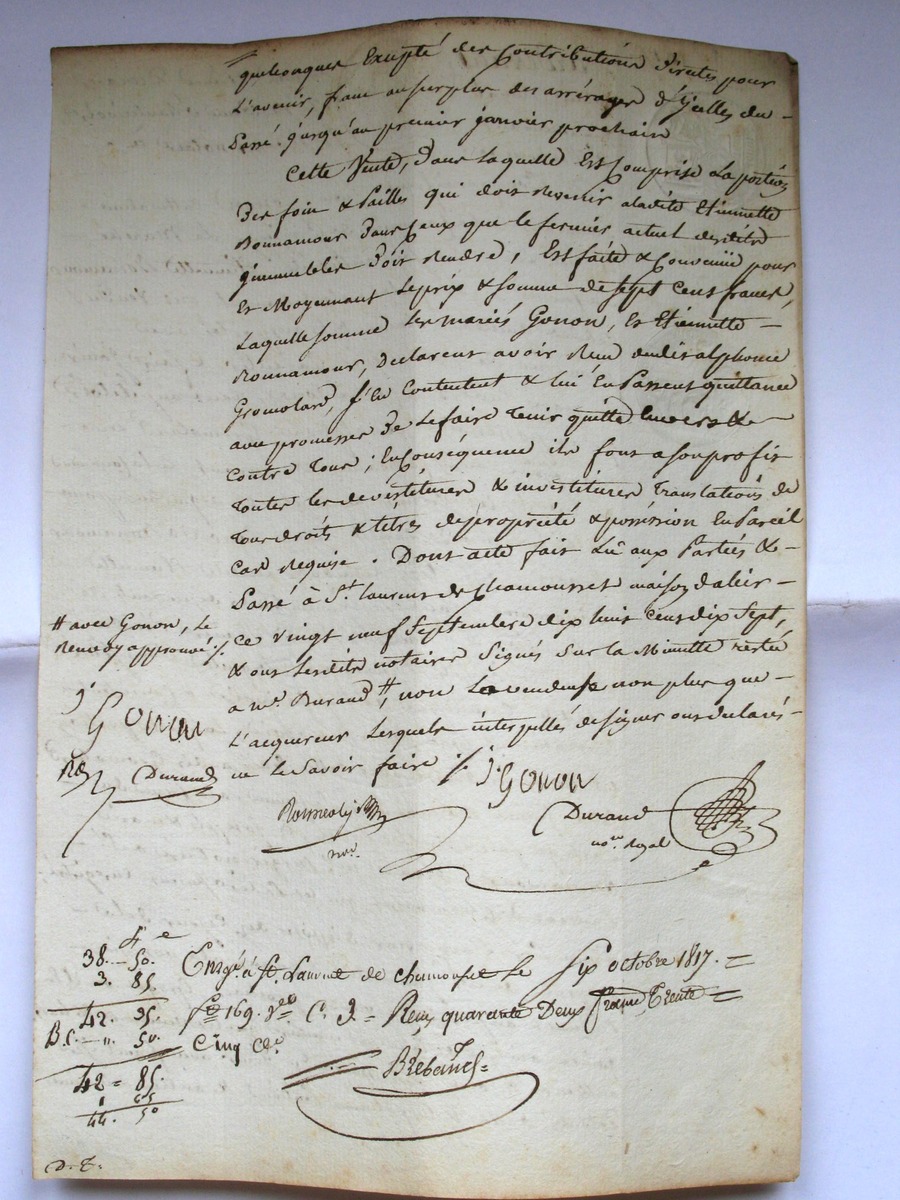 quelconques Excepté des Contributions directes pour
L'avenir, franc au surplus des arrérages d'ycelles du
Passé jusqu'au premier janvier prochain
Cette Vente, dans laquelle Est Comprise La portion
des foin & Pailles qui doit revenir a ladite Etiennette
Bonnamour dans Ceux que le fermier actuel desdits
immeubles doit Rendre, Est faite & Convenue pour
Et Moyennant Le prix & somme de sept Cens francs,
Laquelle somme Les mariés Gonon, Et Etiennette
Bonnamour, Déclarent avoir Reçu dudit alphonse
Gromolard, s'En Contentent & lui En Passent quittance
avec promesse De Le faire Tenir quitte Envers &
Contre Tous; En Conséquence ils font a son profit
Toutes les devestitures & investitures Translations de
Tous droits & titres de propriété & possession En Pareil
Cas Requise. Dont acte fait Lû aux Parties &
Passé à St. Laurent de Chamousset maison d'alier
Ce vingt neuf Septembre dix huit Cens dix sept,
& ont Lesdits notaires Signés Sur la Minutte restée
a Me. Durand #, non La venderesse non plus que
L'acquereur Lesquels interpellés de signer ont déclarés
ne le Savoir faire ./.
# avec Gonon, Le
Renvoy approuvé ./.
J Gonon
Durand
J. Gonon
Durand
nore. Royal
nore.
fr c
38. 50.
3. 85.
42. 35.
B.C. " 50.
42 = 85.
1 65
44. 50
Enrgé. à St. Laurent de Chamousset Le Six octobre 1817. =
fo 169. Vo C. 3. = Reçu quarante Deux francs Trente =
Cinq Ces.
D. T.